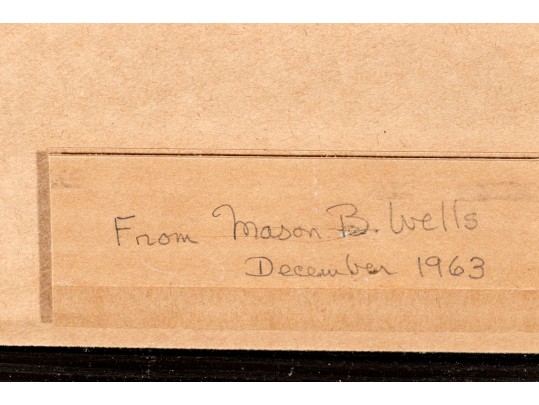 From Mason B. Wells
December 1963